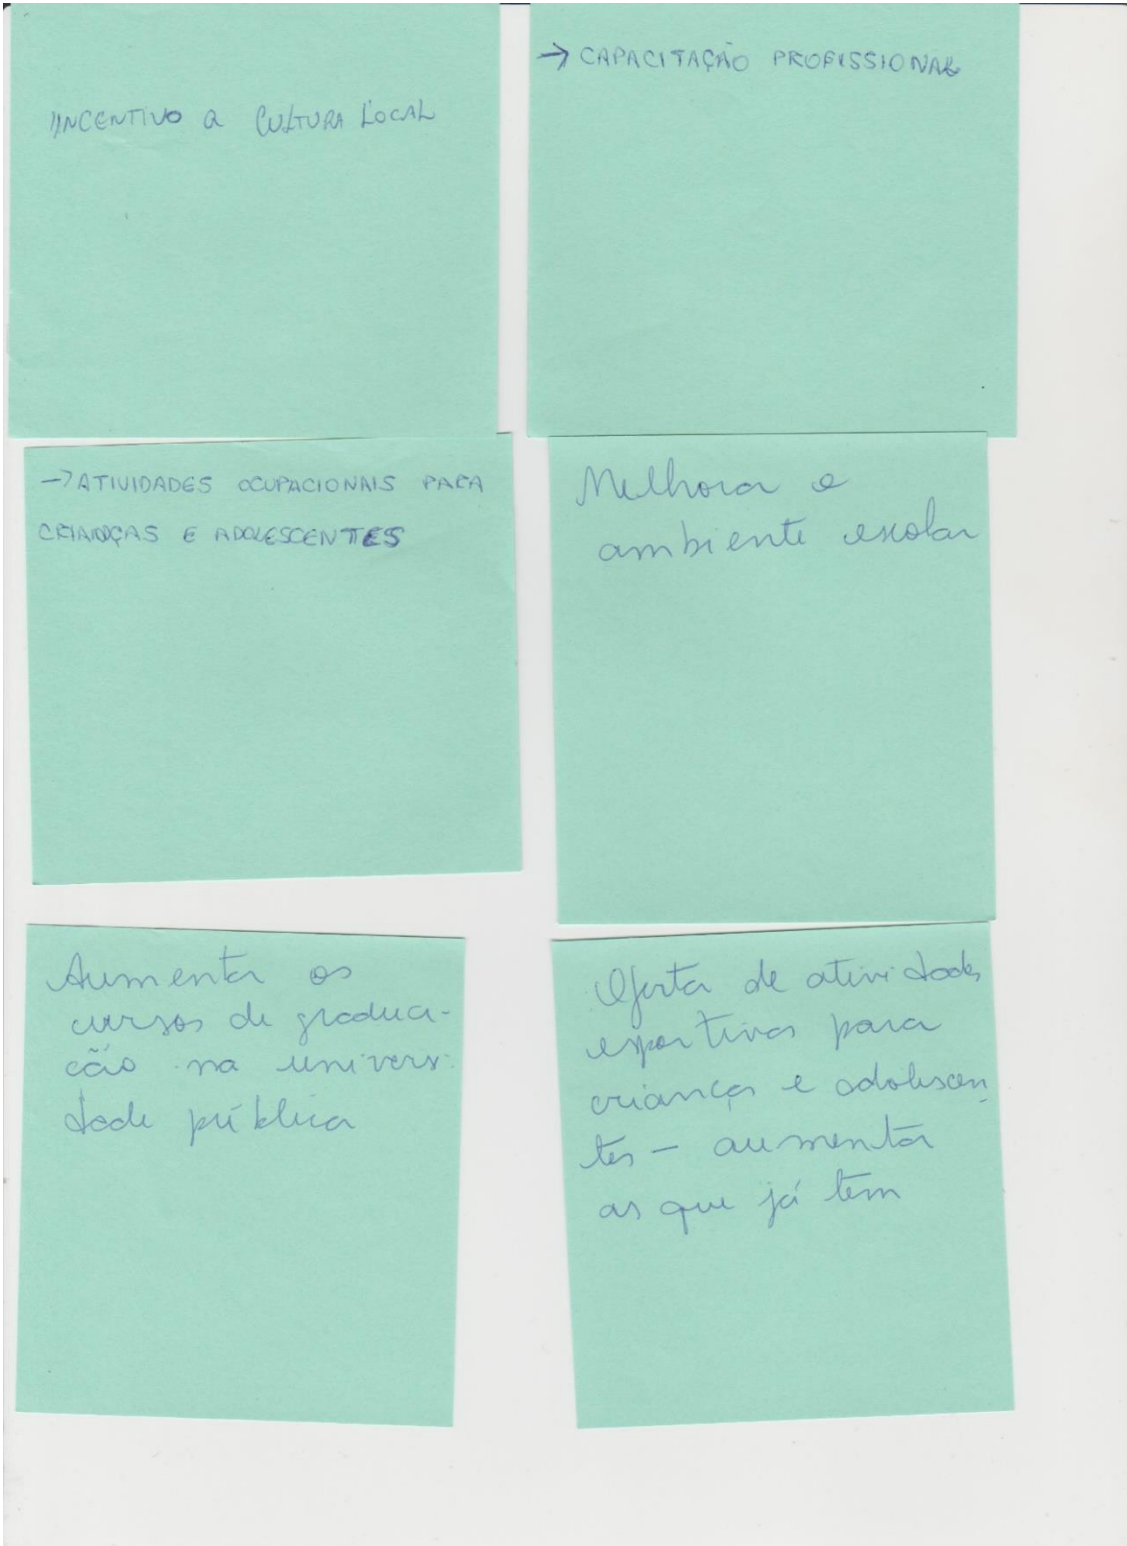 INCENTIVO a CULTURA LOCAL
→ CAPACITAÇÃO PROFISSIONAL
→ ATIVIDADES OCUPACIONAIS PARA
CRIANÇAS E ADOLESCENTES
Melhorar o
ambiente escolar
Aumentar os
cursos de gradua-
ção na universi
dade pública
Oferta de atividades
esportivas para
crianças e adolescen
tes - aumentar
as que já tem